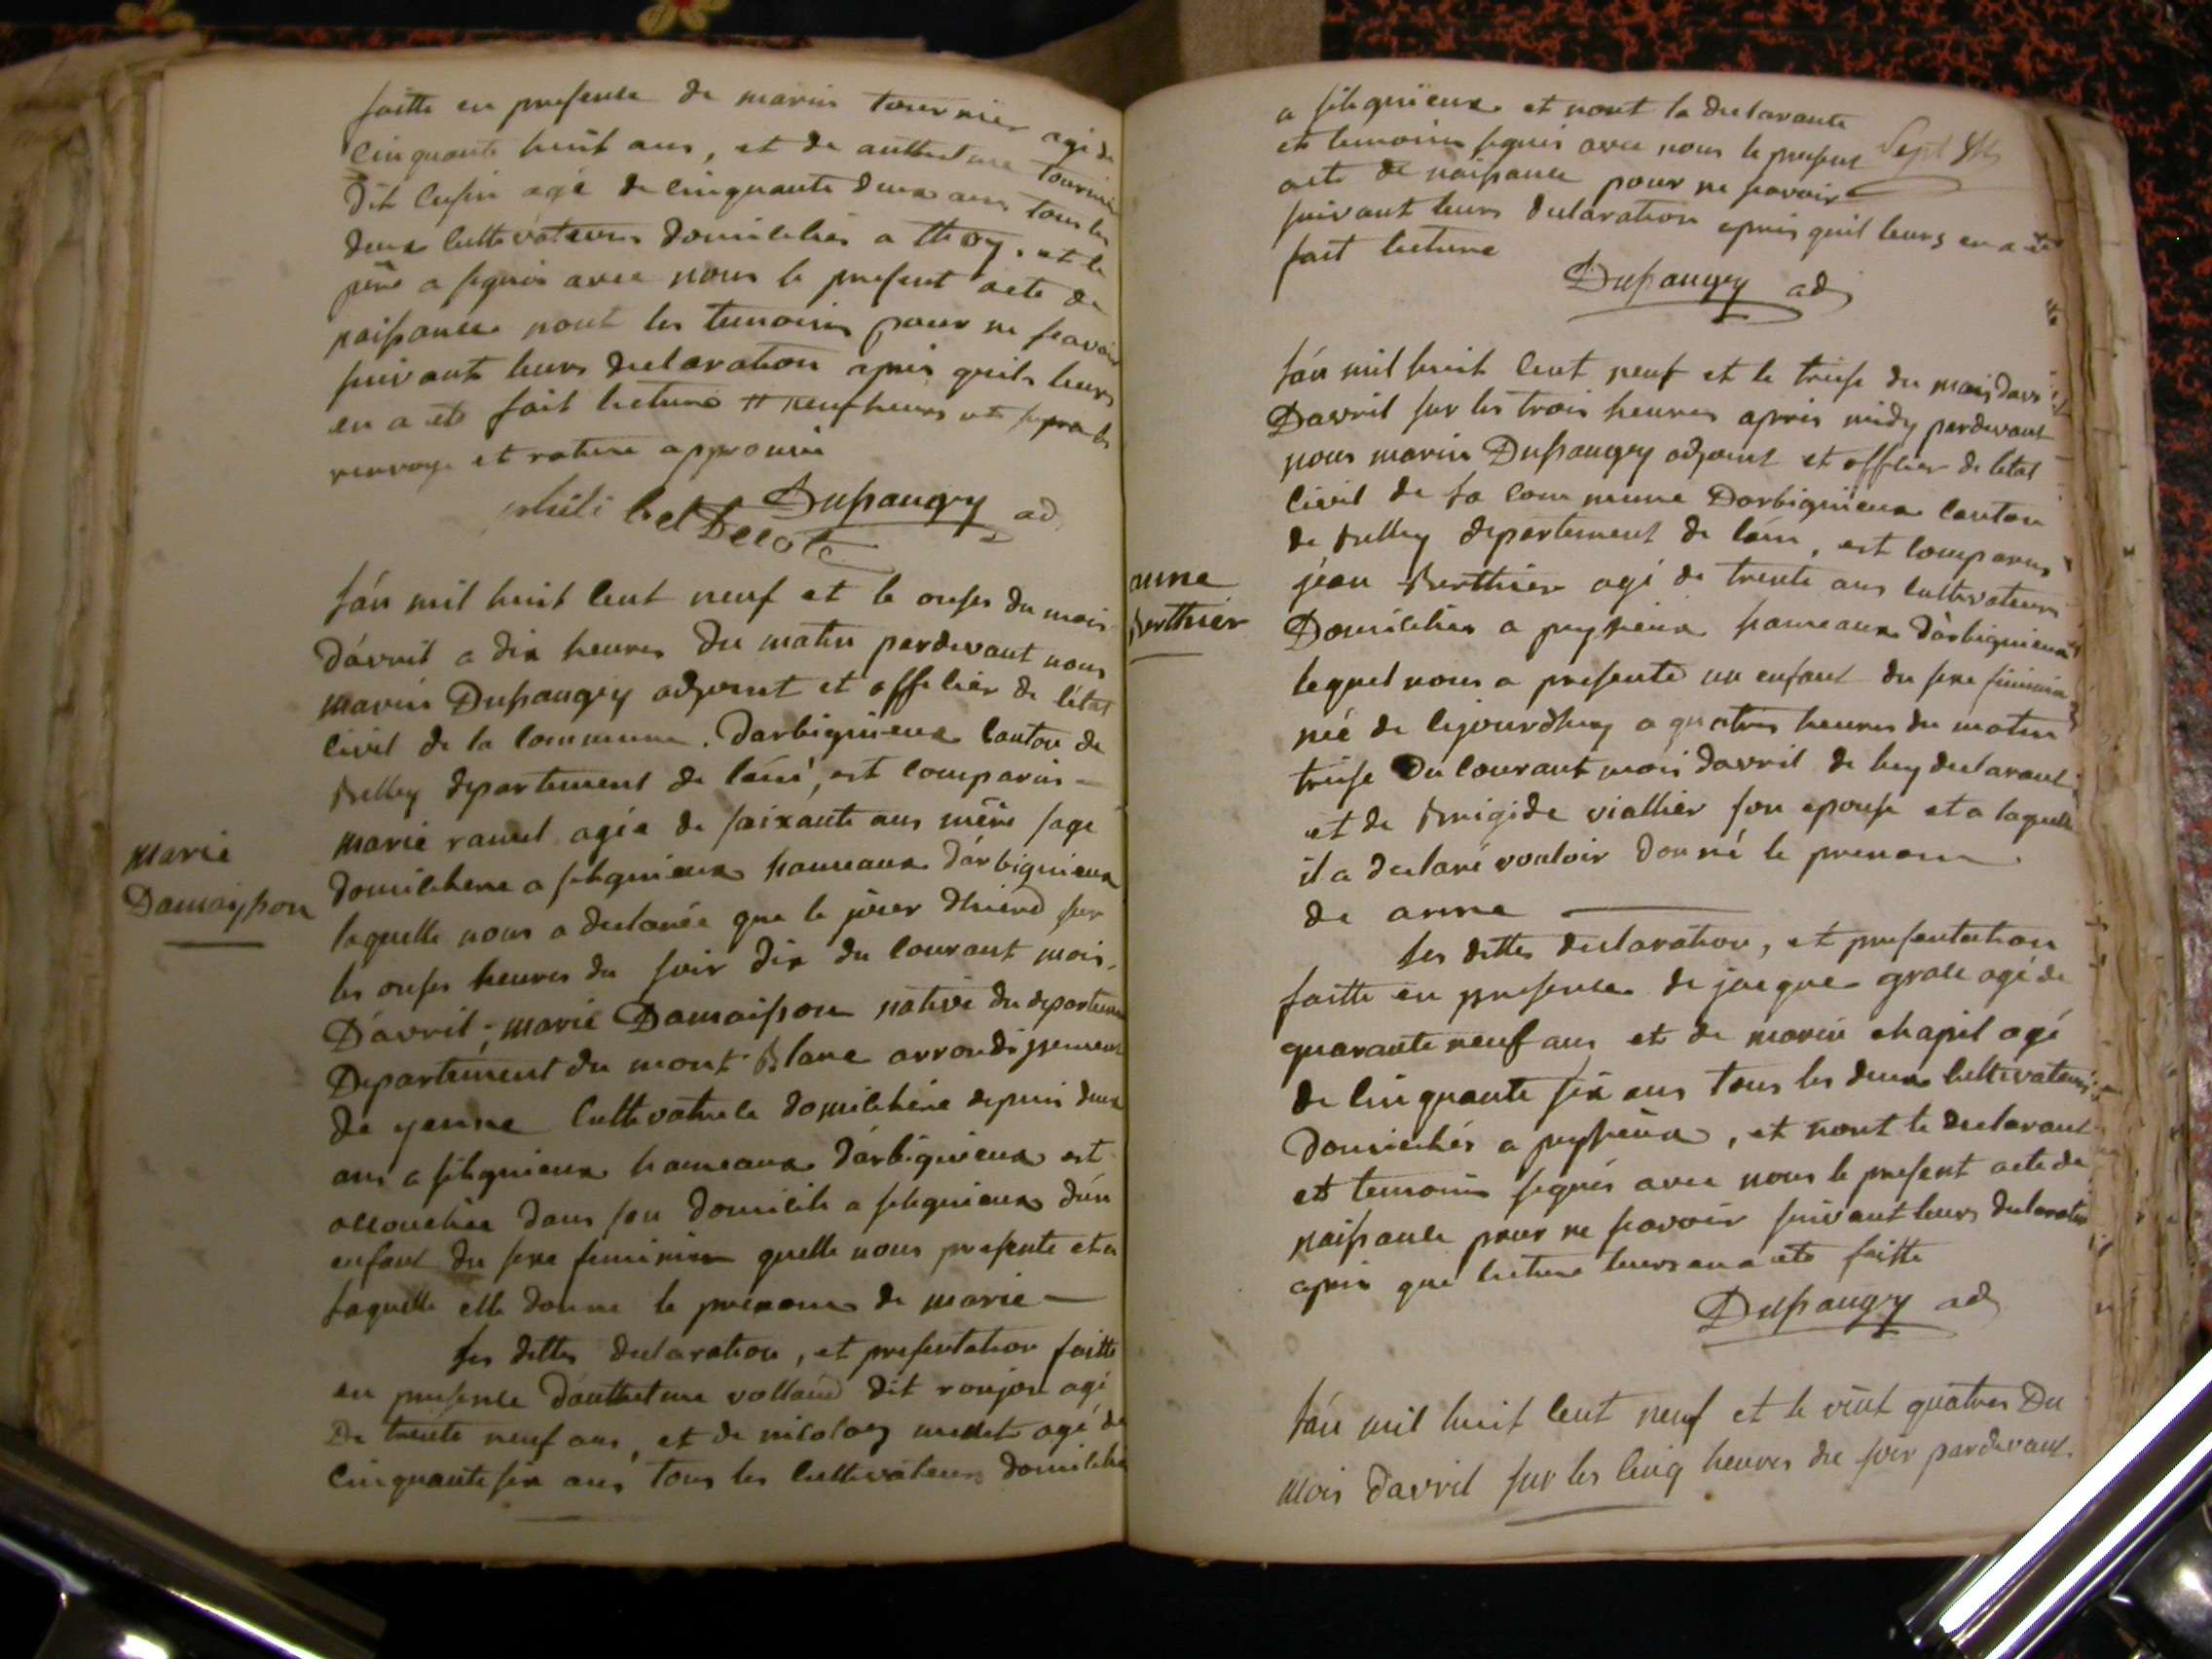 faitte en presence de marin tournier agé de
cinquante huit ans, et de anthelme tournier
dit cusin agé de cinquante deux ans tous les
deux cultivateurs domiciliés a thoy, et le
père a signés avec nous le present acte de
naissance nont les temoins pour ne scavoir
suivant leurs declaration apres quils leurs
en a ete fait lecture # neuf heures et
renvoye et rature approuvé
Dupaugey ad
l'án mil huit cent neuf et le onses du mois
dávril a dix heures du matin pardevant nous
marin Dupaugey adjoint et officier de létat
civil de la commune darbignieux canton de
belley departement de láin, est comparus
marie ramel agée de soixante ans mère sage
domiciliene a silignieux hameaux dárbignieux
laquelle nous a declarée que le jour dhierd sur
les onses heures du soir dix du courant mois
Dávril, marie Damaisson native du departement
Departement du mont Blanc arrondissement
de yenne cultivatrice domiciliéne depuis deux
ans a silignieux hameaux dárbignieux est
accouchée dans son domicile a silignieux dún
enfant du sexe feminin quelle nous presente et a
laquelle elle donne le prenom de marie
les dittes declaration, et presentation faitte
en presence danthelme volland dit ronjon agé
de trente neuf ans, et de nicolas medet agé de
cinquante six ans tous les cultivateurs domiciliés
Marie
Damaysson
a silignieux et nont la declarante
et temoins signés avec nous le present
acte de naissance pour ne scavoir
suivant leurs declaration apres quil leurs en a ete
fait lecture
Dupaugey ad
lán mil huit cent neuf et le treise du mois davr
Davril sur les trois heures apres midy pardevant
nous marin Dupaugey adjoint et officier de letat
civil de la commune Darbignieux canton
de belley departement de láin, est comparus
jean Berthier agé de trente ans cultivateurs
Domiciliés a peyzieux hameaux dárbignieux
lequel nous a presenté un enfant du sexe feminin
née de cejourdhuy a quatres heures du matin
treise du courant mois davril de luy declarant
et de Brigide viallier son epouse et a laquelle
il a declaré vouloir donné le prenom
de anne
les dittes declaration, et presentation
faitte en presence de jacque grale agé de
quarante neuf ans et de marin chapit agé
de cinquante six ans tous les deux cultivateurs
domiciliés a peyzieux, et nont le declarant
et temoins signés avec nous le present acte de
naissance pour ne scavoir suivant leurs declaration
apres que lecture leurs en a ete faitte
Dupaugey ad
anne
Berthier
lán mil huit cent neuf et le vint quatres du
mois davril sur les cinq heures du soir pardevant